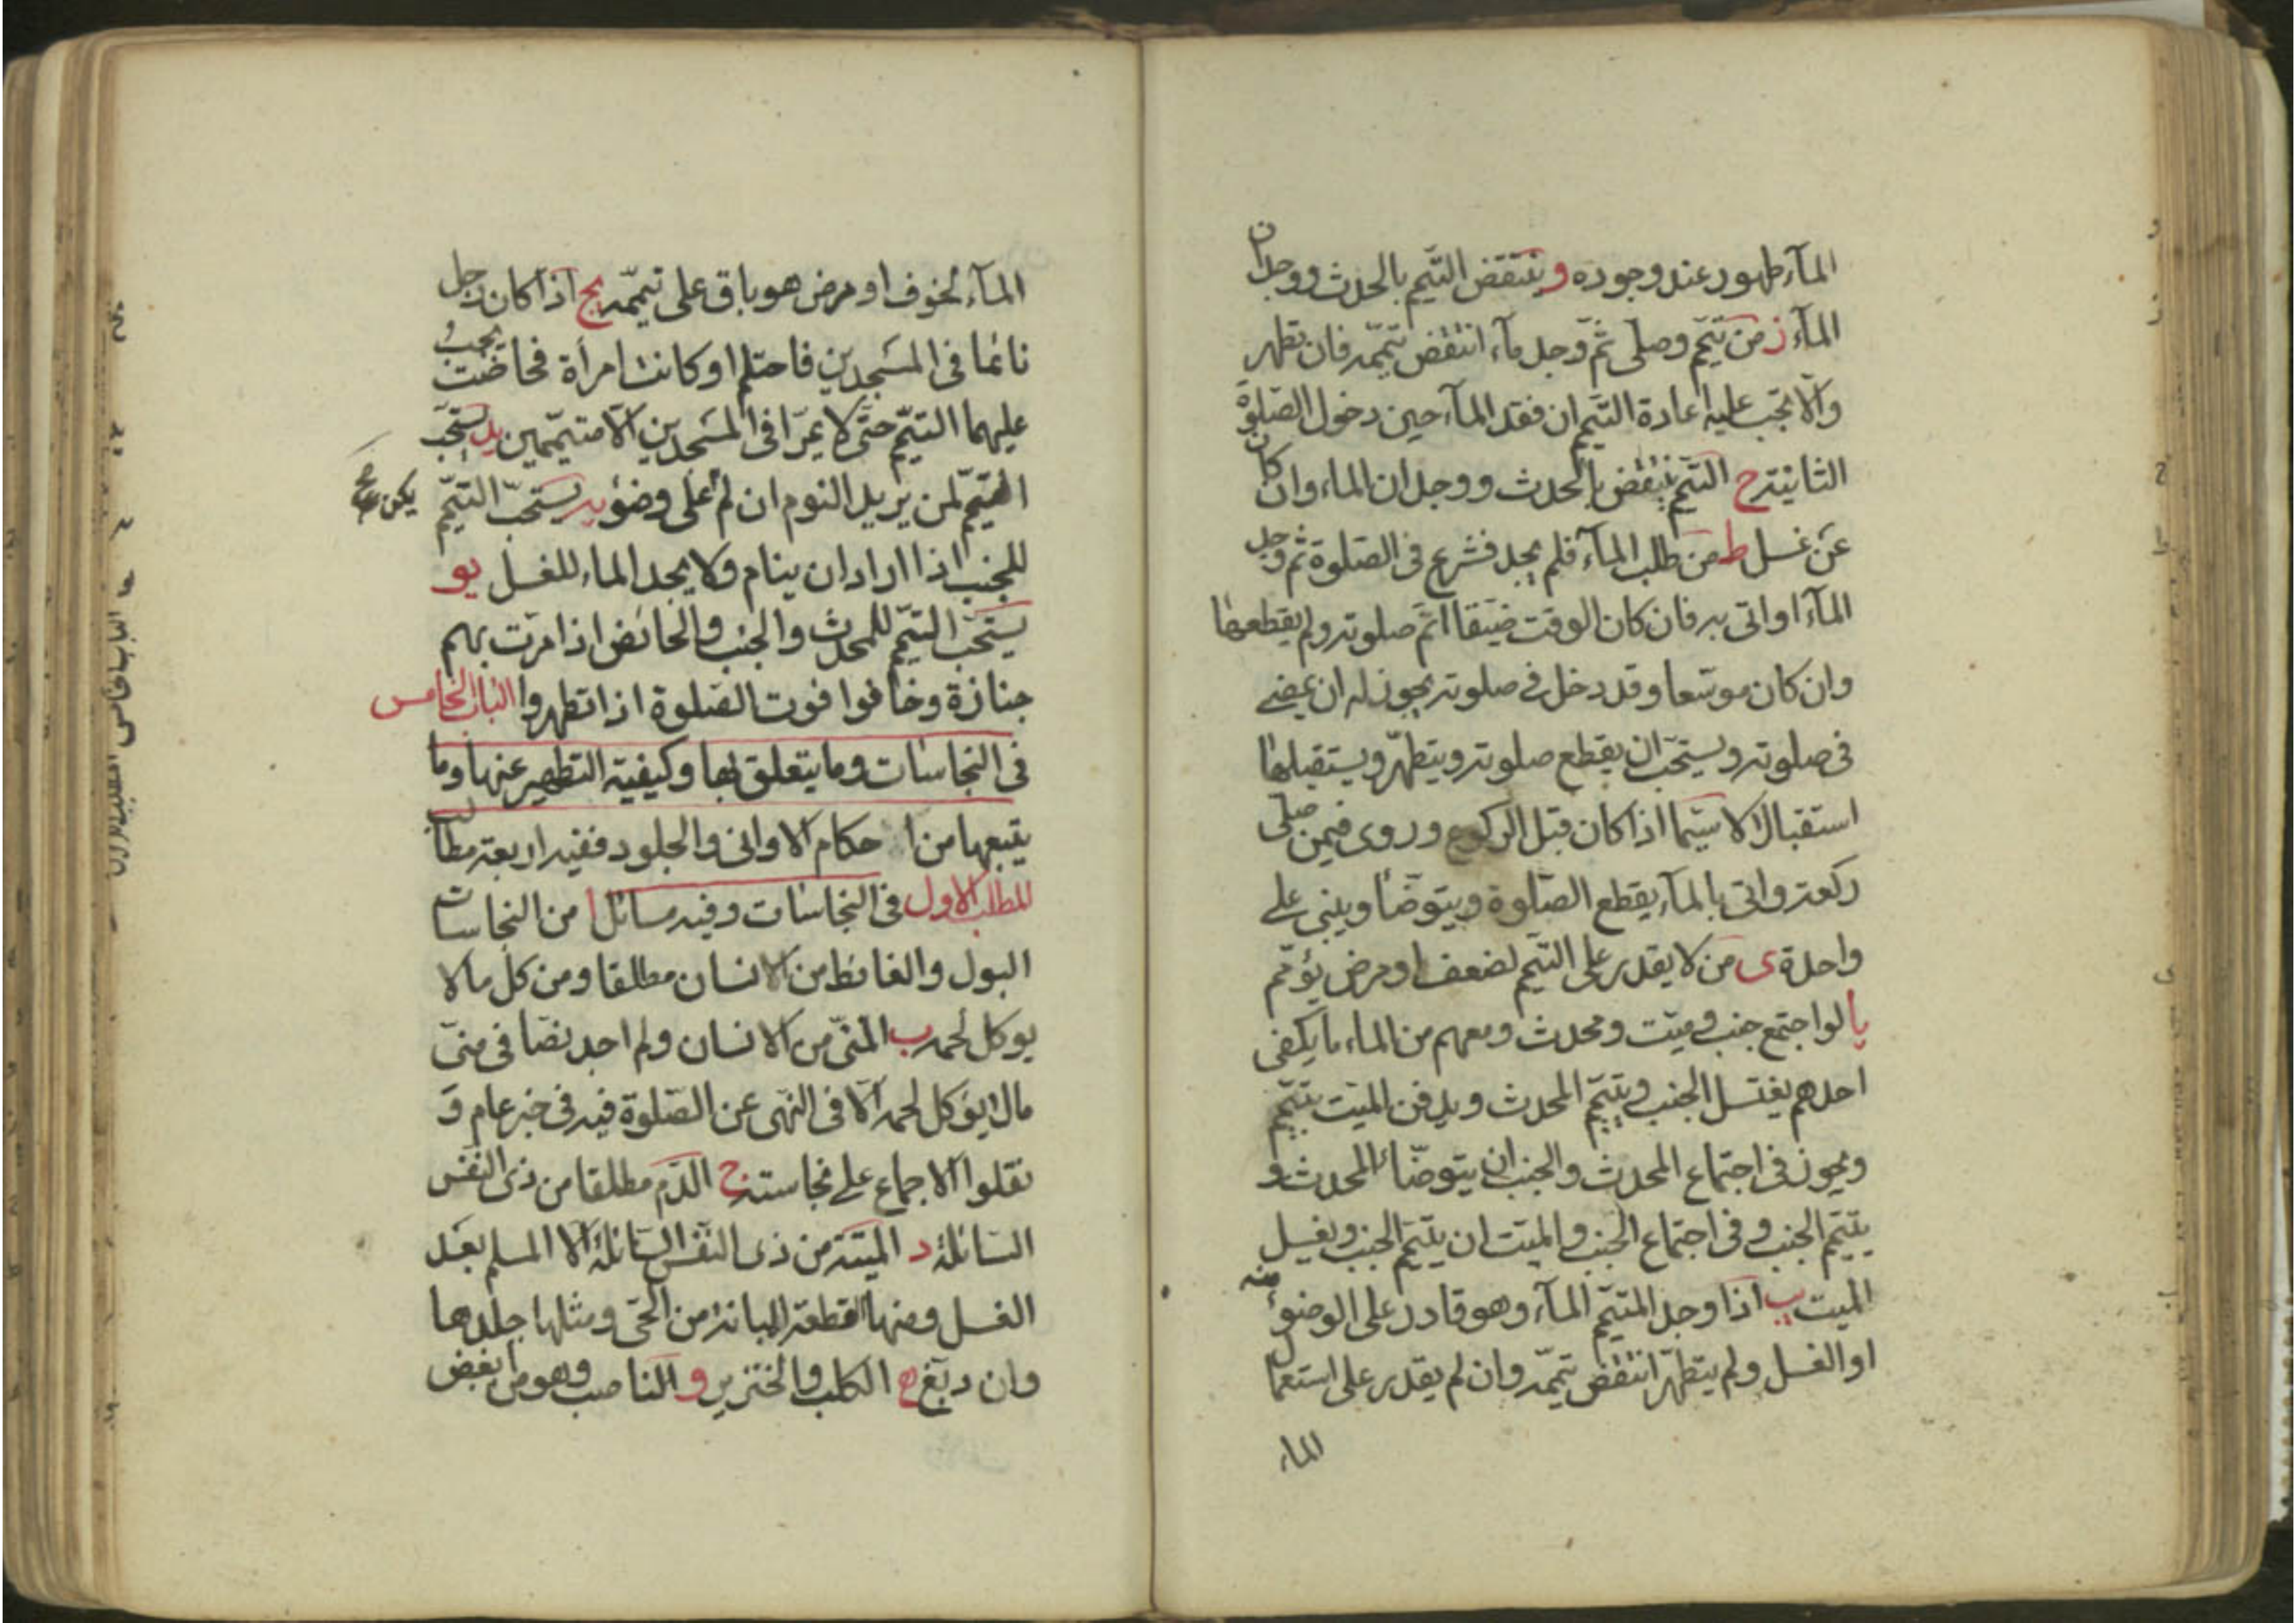 المآء طهور عند وجوده و ينتقض التيمّم بالحدث ووجدان
المآء ز من تيمّم وصلى ثمّ وجد مآء انتقض تيمّمه فان تطهر
والّا تجب عليه اعادة التيمّم ان فقد المآء حين دخول الصّلوة
الثانية ح التيمّم ينتقض بالحدث ووجدان الماء وان كان
عن غسل ط من طلب المآء فلم يجد فشرع فى الصّلوة ثم وجد
المآء او اتى به فان كان الوقت ضيّقا اتمّ صلوته ولم يقطعها
وان كان موسّعا وقد دخل فى صلوته يجوز له ان يمضى
فى صلوته ويستحب ان يقطع صلوته ويتطهّر ويستقبلها
استقبالا لا سيّما اذا كان قبل الركوع وروى فيمن صلى
ركعة واتى بالمآء يقطع الصّلوة ويتوضّا ويبنى على
واحدة ى من لا يقدر على التيمّم لضعف او مرض يؤتم
يا لو اجتمع جنب وميّت ومحدث ومعهم من الماء ما يكفى
احدهم يغتسل الجنب ويتيمّم المحدث ويدفن الميّت بتيمّم
ويجوز فى اجتماع المحدث والجنب ان يتوضّا المحدث و
يتيمّم الجنب وفى اجتماع الجنب والميّت ان يتيمّم الجنب ويغسل
الميت يب اذا وجد المتيمّم المآء وهو قادر على الوضوء منه
او الغسل ولم يتطهّر انتقض تيمّمه وان لم يقدر على استعمال
الماء
المآء لخوف او مرض هو باق على تيمّمه يج اذا كان رجل
نائما فى المسجدين فاحتلم او كانت امرأة فحاضت يجب
عليهما التيمّم حتّى لا يمرّا فى المسجدين الّا متيمّمين يد يستحبّ
التيمّم لمن يريد النوم ان لم يكن على وضوء يه يستحبّ التيمّم
للجنب اذا اراد ان ينام ولا يجد الماء للغسل يو
يستحب التيمّم للمحدث والجنب والحائض اذا مرّت بهم
جنازة وخافوا فوت الصّلوة اذا تطهروا الباب الخامس
فى النجاسات وما يتعلق بها وكيفية التطهير عنها وما
يتبعها من احكام الاوانى والجلود ففيه اربعة مطالب
المطلب الاول فى النجاسات وفيه مسائل ا من النجاسات
البول والغائط من الانسان مطلقا ومن كل ما لا
يوكل لحمه ب المنّى من الانسان ولم اجد نصّا فى منىّ
مالا يؤكل لحمه الّا فى النهى عن الصّلوة فيه فى خبر عام و
نقلوا الاجماع على نجاسته ج الدّم مطلقا من ذى النفس
السّائلة د الميتة من ذى النفس السّائلة الّا المسلم بعد
الغسل ومنها القطعة المبانة من الحّى ومثلها جلدها
وان دبّغ ه الكلب والخنزير و النّاصب وهو من ابغض